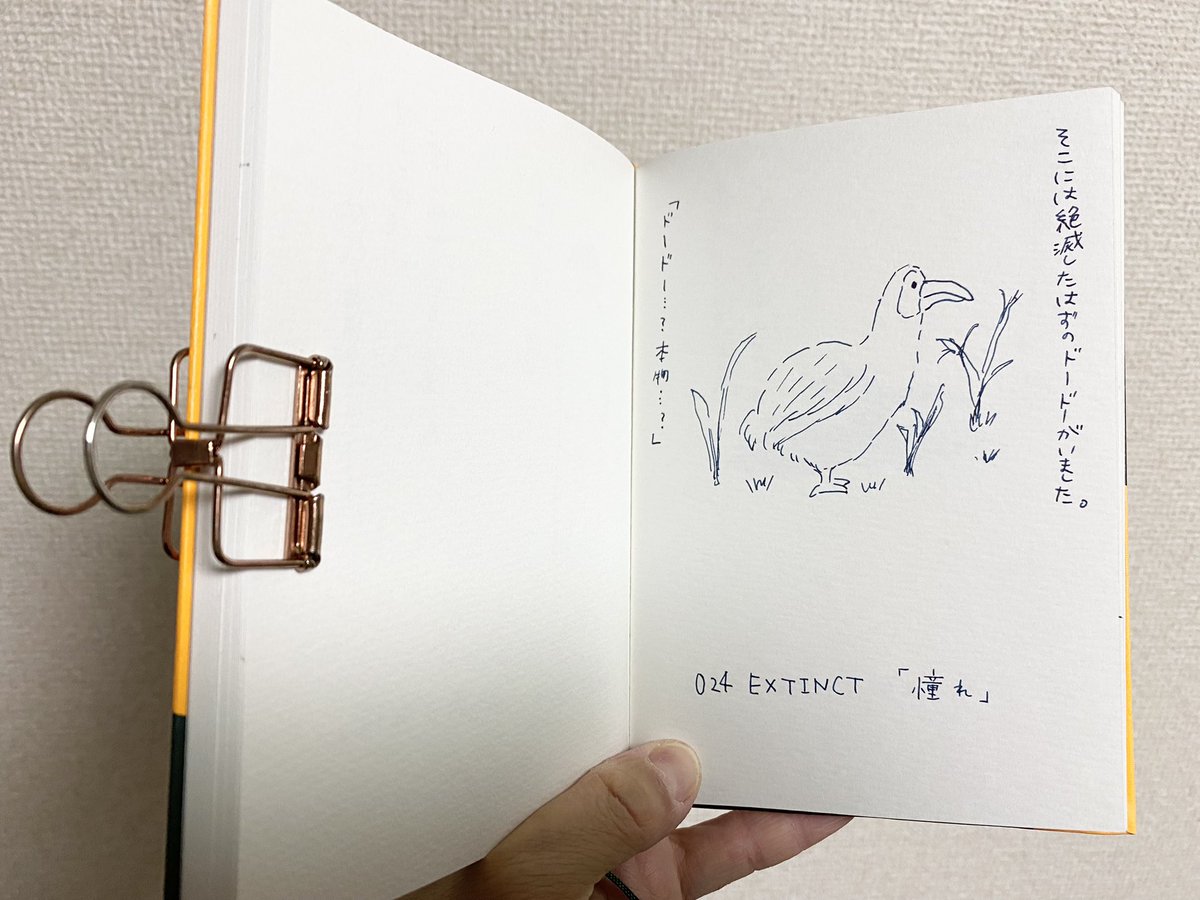 そこには絶滅したはずのドードーがいました。
「ドードー…?本物…?」
024 EXTINCT 「憧れ」